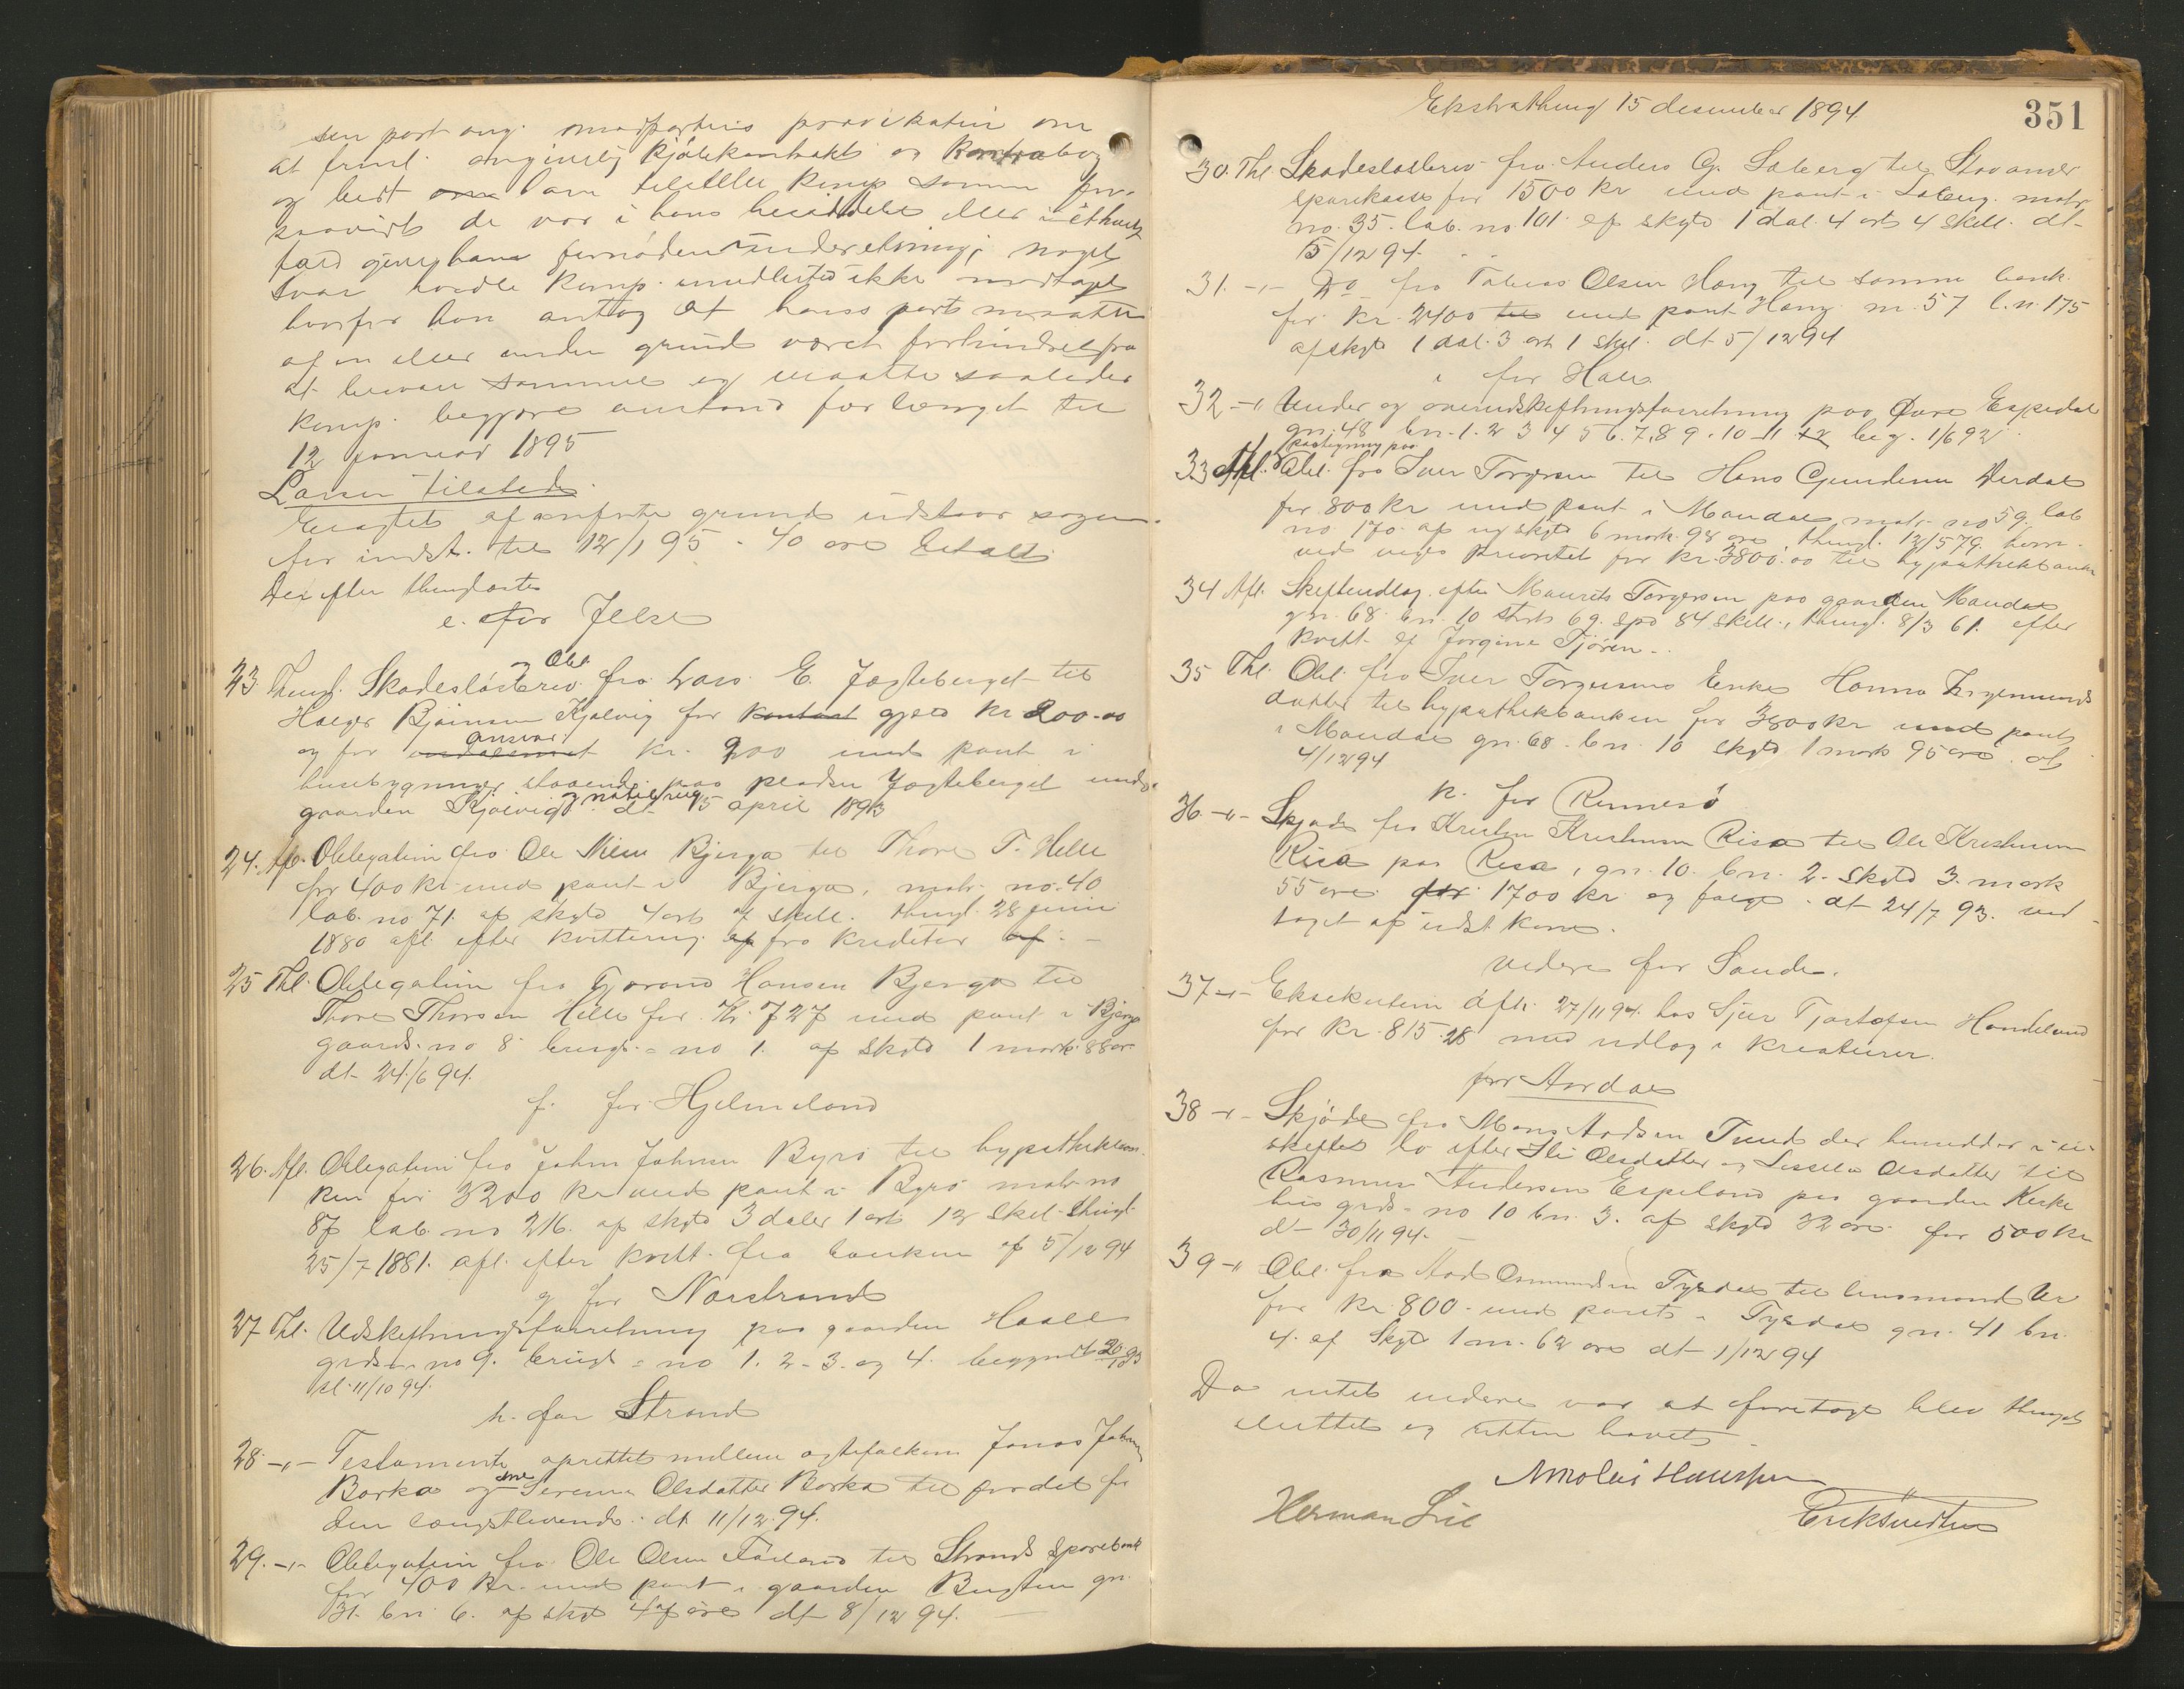 sin part ang. modpartens provikation om
at freml. angivelig kjøbekontrakt og Kontrabog
og bedt ham tilstille komp samme for-
saavidt de var i hans besiddelse eller i ethvert
fald give ham fornøden underretning; noget
svar havde komp. imidlertid ikke modtaget
hvorfor han antog at hans part maatte
af en eller anden grund været forhindret fra
at besvare samme og maatte saaledes
komp. begjære anstand forlænget til
12 januar 1895
Larsen tilsteds.
Eragtet af anførte grund udstaar sagen
for indst. til 12/1 95 - 40 øre betalt
Derefter thinglæstes
e. for Jelse
23. Thingl. Skadesløsbrev og Obl. fra Lars E. Jagteberget til
Holger Bjørnsen Kjølvig for kontant gjæld kr 200-00
og for ansvar kr. 200 med pant i
husebygninger staaende paa pladsen Jagteberget under
gaarden Kjølvig dt 15 april 1893
24. Afl. Obligation fra Ole Bjerga til Thore T. Helle
for 400 kr med pant i Bjerga, matr. no. 40
lab. no 71. af skyld 4 ort 7 skill. thingl. 28 juni
1880 afl. efter kvittering fra kreditor
25 Thl. Obligation fra Gjorand Hansen Bjerga til
Thore Thorsen Helle for Kr. 727 med pant i Bjerga
gaards-no 8 brugs-no 1. af skyld 1 mark 88 ør
dt 24/6 94.
f. for Hjelmeland
26. Afl. Obligation fra John Johnsen Byrø til hypothekban-
ken for 3200 kr med pant i Byrø matr-no
87 lab. no 216. af skyld 3 daler 1 ort 12 skil. thingl.
25/7 1881. afl. efter kvitt. fra banken af 5/12 94
g for Narstrand
27 Thl. Udskiftningsforretning paa gaarden
grds-no 9. brugs-no 1. 2-3. og 4. begyndt 20/10 93
sl. 11/10 94.
h. for Strand
28 -"- Testamente oprettet mellem ægtefolkene Jonas Johnsen
Barka og Serena Olsdatter Barka til fordel for
den længstlevende. dt 11/12 94.
29. -"- Obligation fra Ole Olsen til Strands sparebank
for 400 Kr. med pant i gaarden Bugten gn.
31. bn. 6. af skyld 47 øre dt 8/12 94.
Ekstrathing 15 desember 1894
351
30. Thl. Skadesløsbrev fra Anders G. til Stavanger
sparekasse for 1500 kr med pant i matr.
no. 35. lab. no 101 af skyld 1 dal. 4 ort 4 skill. dt
15/12 94.
31. -"- Do fra Tobias Olsen Haug til samme bank
for kr. 2400 med pant Haug m. 57 l.n. 175
af skyld 1 dal. 3 ort 1 skil. dt 5/12 94
i for Hale
32 -"- Under og overudskiftningsforretning paa Øvre Espedal
gn. 48 bn. 1. 2 3 4 5 6. 7. 8 9. 10 11 12 beg. 1/6 92
33 Afl. paategning paa Obl. fra Iver Torgersen til Hans Gundersen
for 800 kr med pant i Maudal matr-no 59. lab
no 170 af ny skyld 6 mark 98 øre thingl. 12/5 79. hvor-
ved viges prioritet for kr. 3800.00 til hypothekbanken
34 Afl. Skifteudlæg efter Maurits Torgersen paa gaarden Maudal
gn. 68 bn. 10 storts 69. spd 84 skill., thingl. 8/3 61. efter
kvitt. af Jorgine Tjøren.
35 Thl. Obl. fra Iver Torgersens Enke Hanna
datter til hypothekbanken for 3800 kr med pant
i Maudal gn. 68 - bn. 10 skyld 1 mark 95 øre dt
4/12 94
k. for Rennesø
36. -"- Skjøde fra Kristen Kristensen Risa til Ole Kristensen
Risa paa Risa, gn. 10. bn. 2. skyld 3. mark
55 øre for 1700 kr og følge. dt 24/7 93. ved-
taget af udst kone.
videre for Sande.
37 -"- Eksekution afh. 27/11 94 hos Sjur Tjostofsen Handeland
for kr. 815.28 med udlæg i kreaturer.
for Aardal
38 -"- Skjøde fra Mons Aadsen Tveid der hensidder i u-
skiftet bo efter Olsdatter og Olsdatter til
Rasmus Andersen Espeland paa gaarden Kirke
hus grds-no 10 bn. 3. af skyld 32 øre for 500 kr
dt 30/11 94.
39 -"- Obl. fra Aad Osmundsen Tysdal til lensmand
for kr 800 med pant i Tysdal gn. 41 bn.
4. af skyld 1 m. 62 øre dt 1/12 94
Da intet videre var at foretage blev thinget
sluttet og retten hævet
Nikolai Hansen
Herman Lie